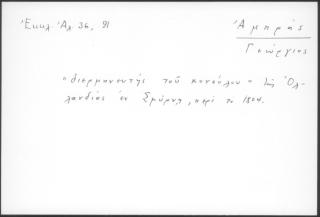 Ἐκκλ. Ἀλ. 36, 91
Ἀμπράς
Γεώργιος
"διερμηνευτής τοῦ κονσόλου" τῆς Ὀλ-
λανδίας ἐν Σμύρνῃ, περί το 1804.